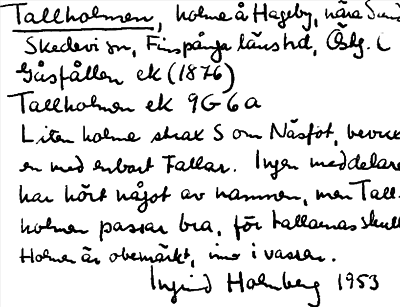 Tallholmen, holme å Hageby, nära Sund
Skedevi sn, Finspånga länshd, Östg. l
Gåsfållen ek (1876)
Tallholmen ek 9G6a
Liten holme strax S om Näsfot, bevux
en med enbart Tallar. Ingen meddelare
har hört något av namnen, men Tall-
holmen passar bra, för tallarnas skull
Holmen är obemärkt, inne i vassen.
Ingrid Holmberg 1953